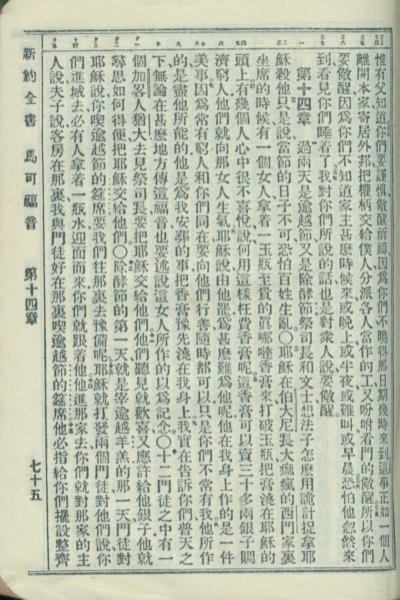 惟有父知道你們要謹慎儆醒祈禱因爲你們不曉得那日期幾時來到這事正如一個人
離開本家寄居外邦把權柄交給僕人分派各人當作的工又吩咐看門的儆醒所以你們
要儆醒因爲你們不知道家主甚麼時候來或晚上或半夜或雞叫或早晨恐怕他忽然來
到看見你們睡着了我對你們所說的話也是對衆人說要儆醒
第十四章 過兩天是逾越節又是除酵節祭司長和文士想法子怎麼用詭計捉拿耶
穌殺他只是說當節的日子不可恐怕百姓生亂○耶穌在伯大尼長大痲瘋的西門家裏
坐席的時候有一個女人拿着一玉瓶至貴的眞哪噠香膏來打破玉瓶把膏澆在耶穌的
頭上有幾個人心中很不喜悅說何用這樣枉費香膏呢這香膏可以賣三十多兩銀子賙
濟窮人他們就向那女人生氣耶穌說由他罷爲甚麼難爲他呢他在我身上作的是一件
美事因爲常有窮人和你們同在要向他們行善隨時都可以只是你們不常有我他所作
的是盡他所能的他是爲我安葬的事把香膏豫先澆在我身上我實在告訴你們普天之
下無論在甚麼地方傳這福音也要述說這女人所作的以爲記念○十二門徒之中有一
個加畧人猶大去見祭司長要把耶穌交給他們他們聽見就歡喜又應許給他銀子他就
尋思如何得便把耶穌交給他們○除酵節的第一天就是宰逾越羊羔的那一天門徒對
耶穌說你喫逾越節的筵席要我們往那裏去豫備呢耶穌就打發兩個門徒對他們說你
們進城去必有人拿着一瓶水迎面而來你們就跟着他他進那家去你們就對那家的主
人說夫子說客房在那裏我與門徒好在那裏喫逾越節的筵席他必指給你們擺設整齊
新約全書 馬可福音 第十四章 七十五